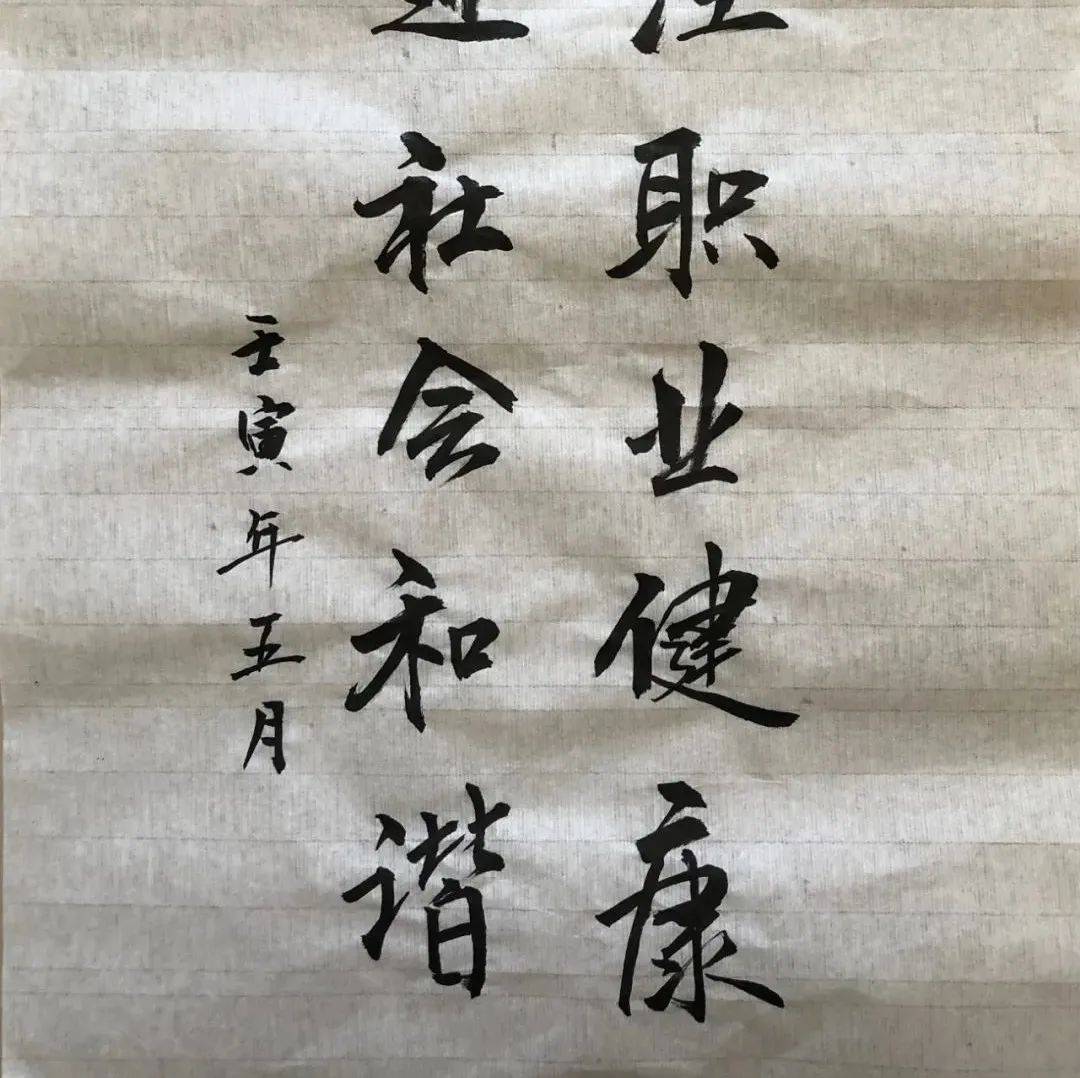 职业健康
社会和谐
壬寅年五月